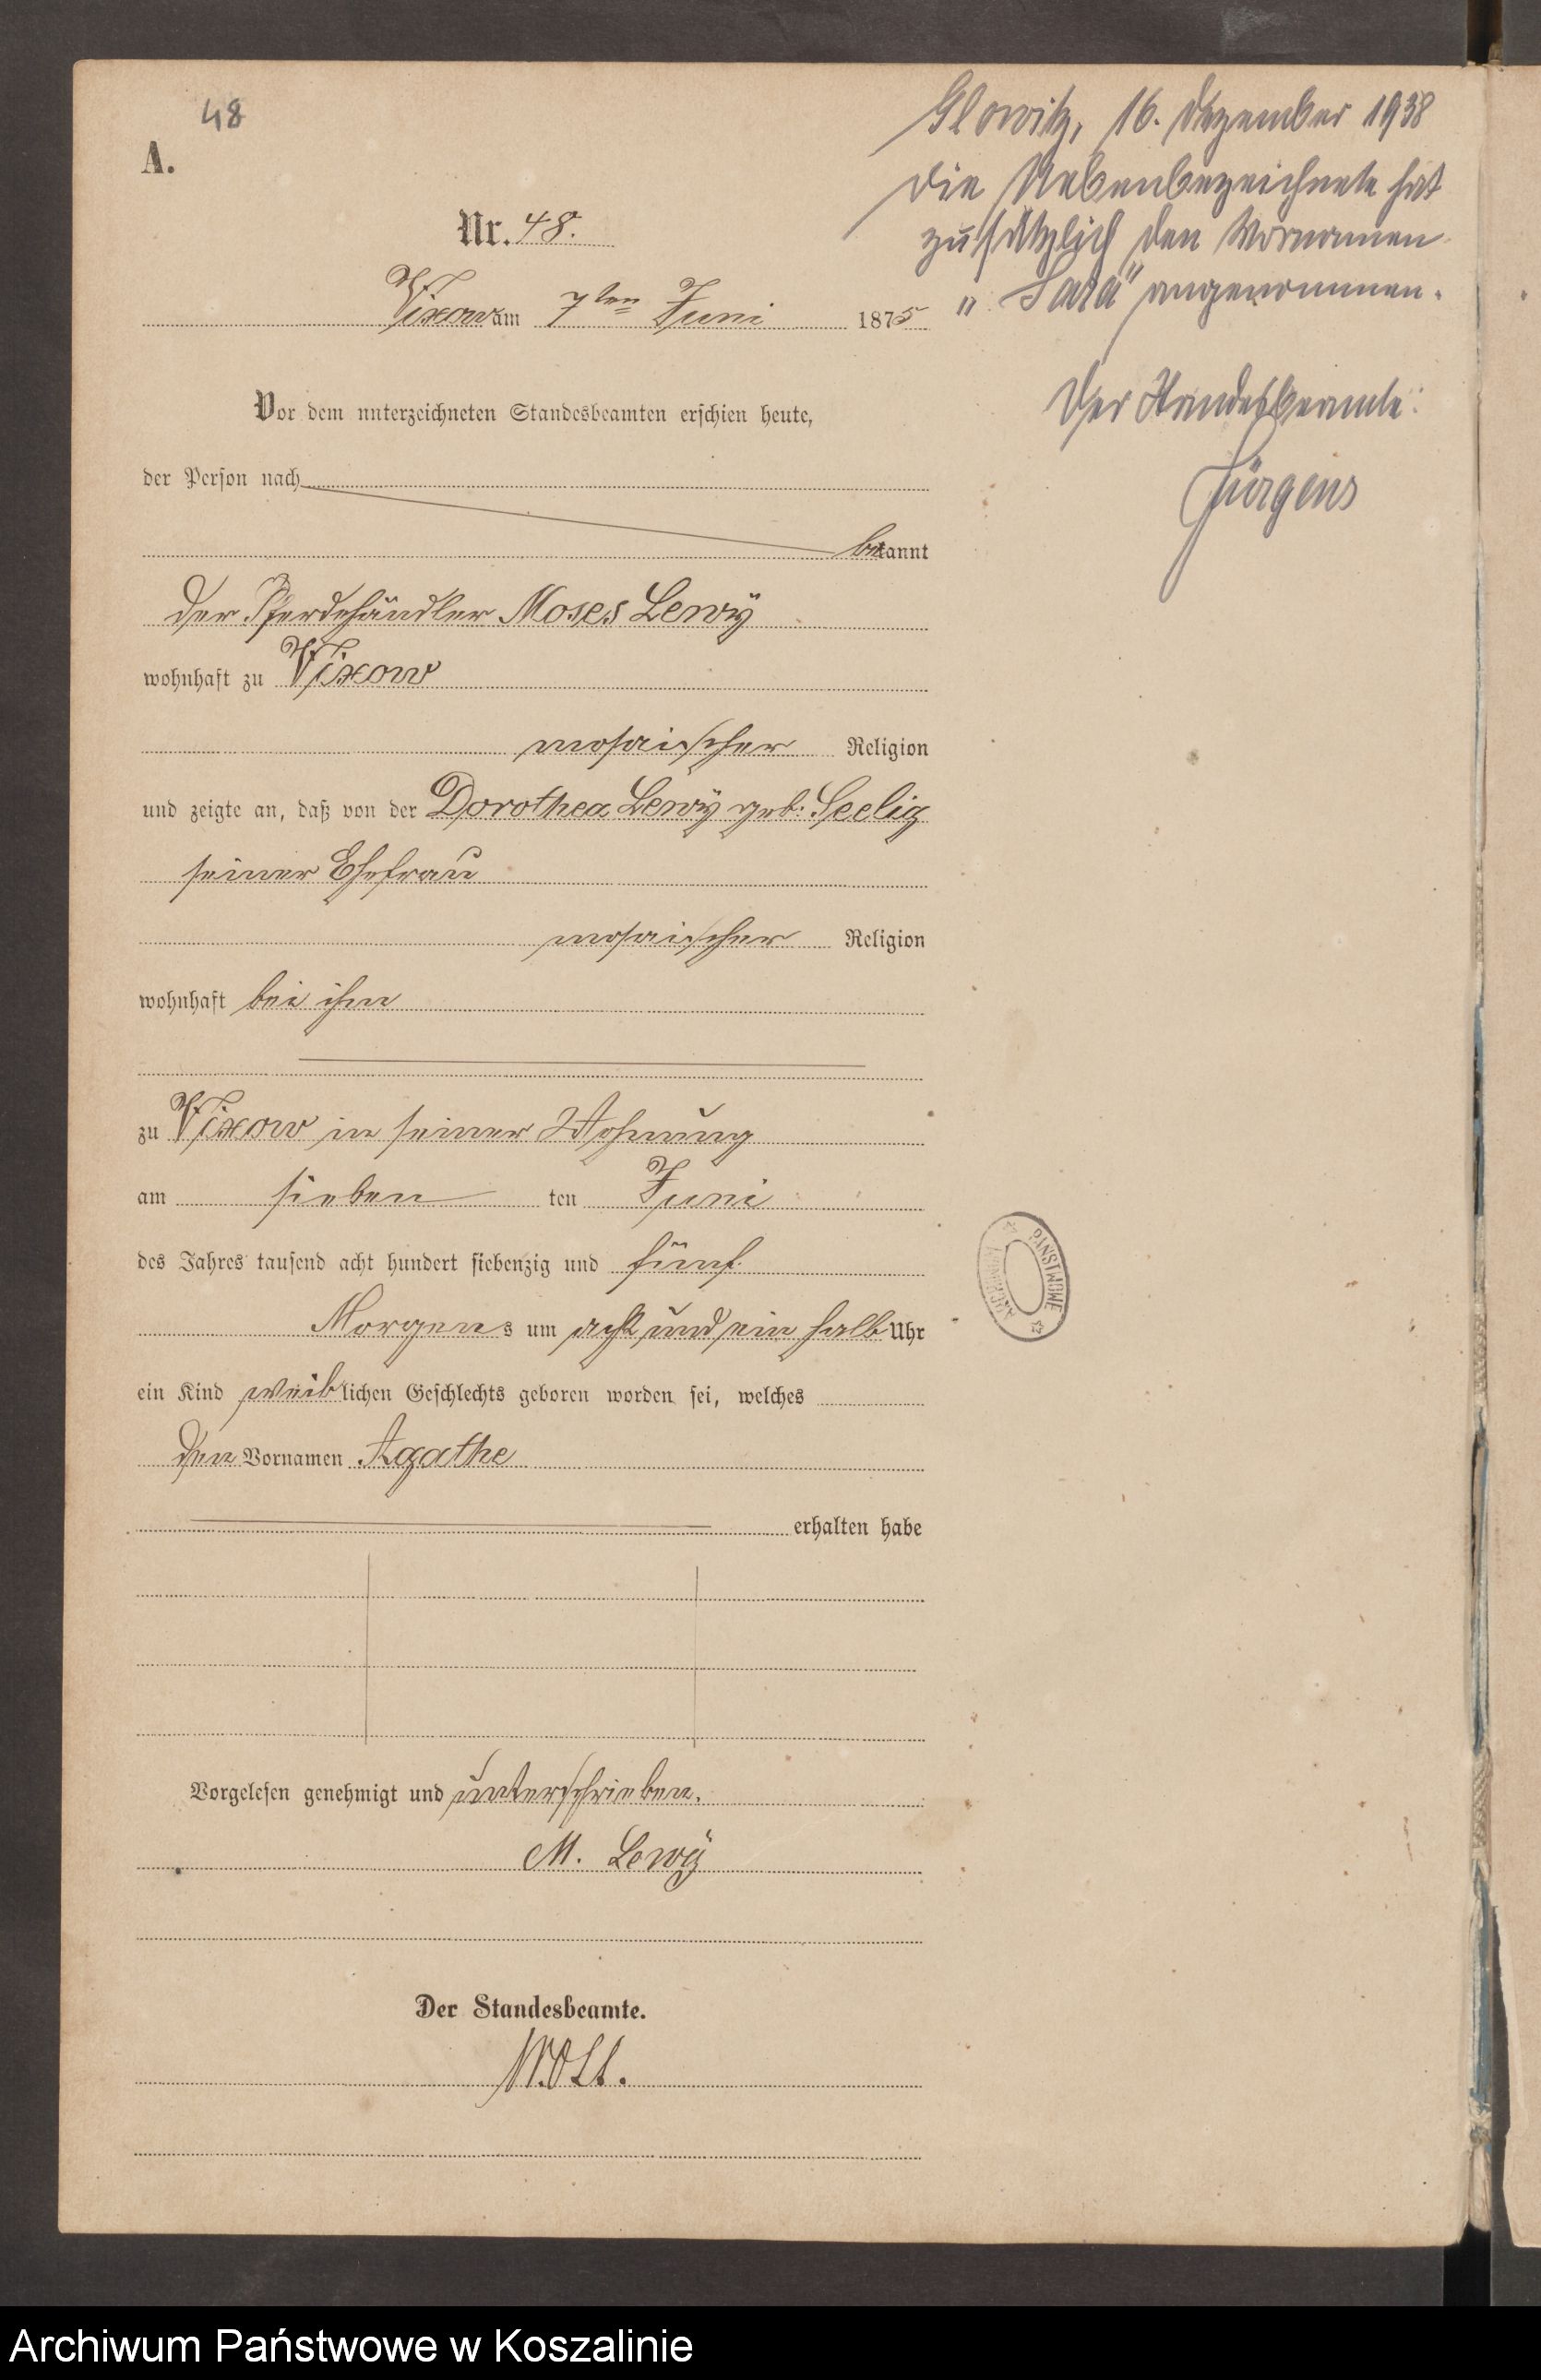 48
A.
Nr. 48.
Vixow am 7ten Juni 1875
Vor dem unterzeichneten Standesbeamten erschien heute,
der Person nach
bekannt
der Pferdehändler Moses Lewÿ
wohnhaft zu Vixow
mosaischer Religion
und zeigte an, daß von der Dorothea Lewÿ geb. Seelig
seiner Ehefrau
mosaischer Religion
wohnhaft bei ihm
zu Vixow in seiner Wohnung
am sieben ten Juni
des Jahres tausend acht hundert siebenzig und fünf
Morgens um acht und ein halb Uhr
ein Kind weiblichen Geschlechts geboren worden sei, welches
den Vornamen Agathe
erhalten habe
Vorgelesen genehmigt und unterschrieben.
M. Lewÿ
Der Standesbeamte.
Glowitz, 16. Dezember 1938
Die Nebenbezeichnete hat
zusätzlich den Vornamen
„Sara" angenommen.
Der Standesbeamte:
Jürgens
ARCHIWUM PAŃSTWOWE
Archiwum Państwowe w Koszalinie